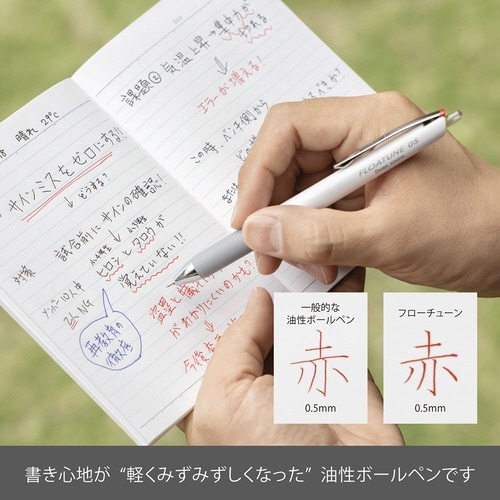 晴れ 29℃
サインミスをゼロにする!!
↓どうする?
対策
試合前にサインの確認!
↓
ナンバー10人中
2人NG
ヒロシとタロウが
覚えていない!!
再教育の
徹底
課題② 気温上昇→集中力が
↓
エラーが増える!
この時、ベンチ側から
盗塁と
がわかりにくいのかも?
↓
FLOATUNE 05
一般的な
油性ボールペン
赤
0.5mm
フローチューン
赤
0.5mm
書き心地が “軽くみずみずしくなった” 油性ボールペンです